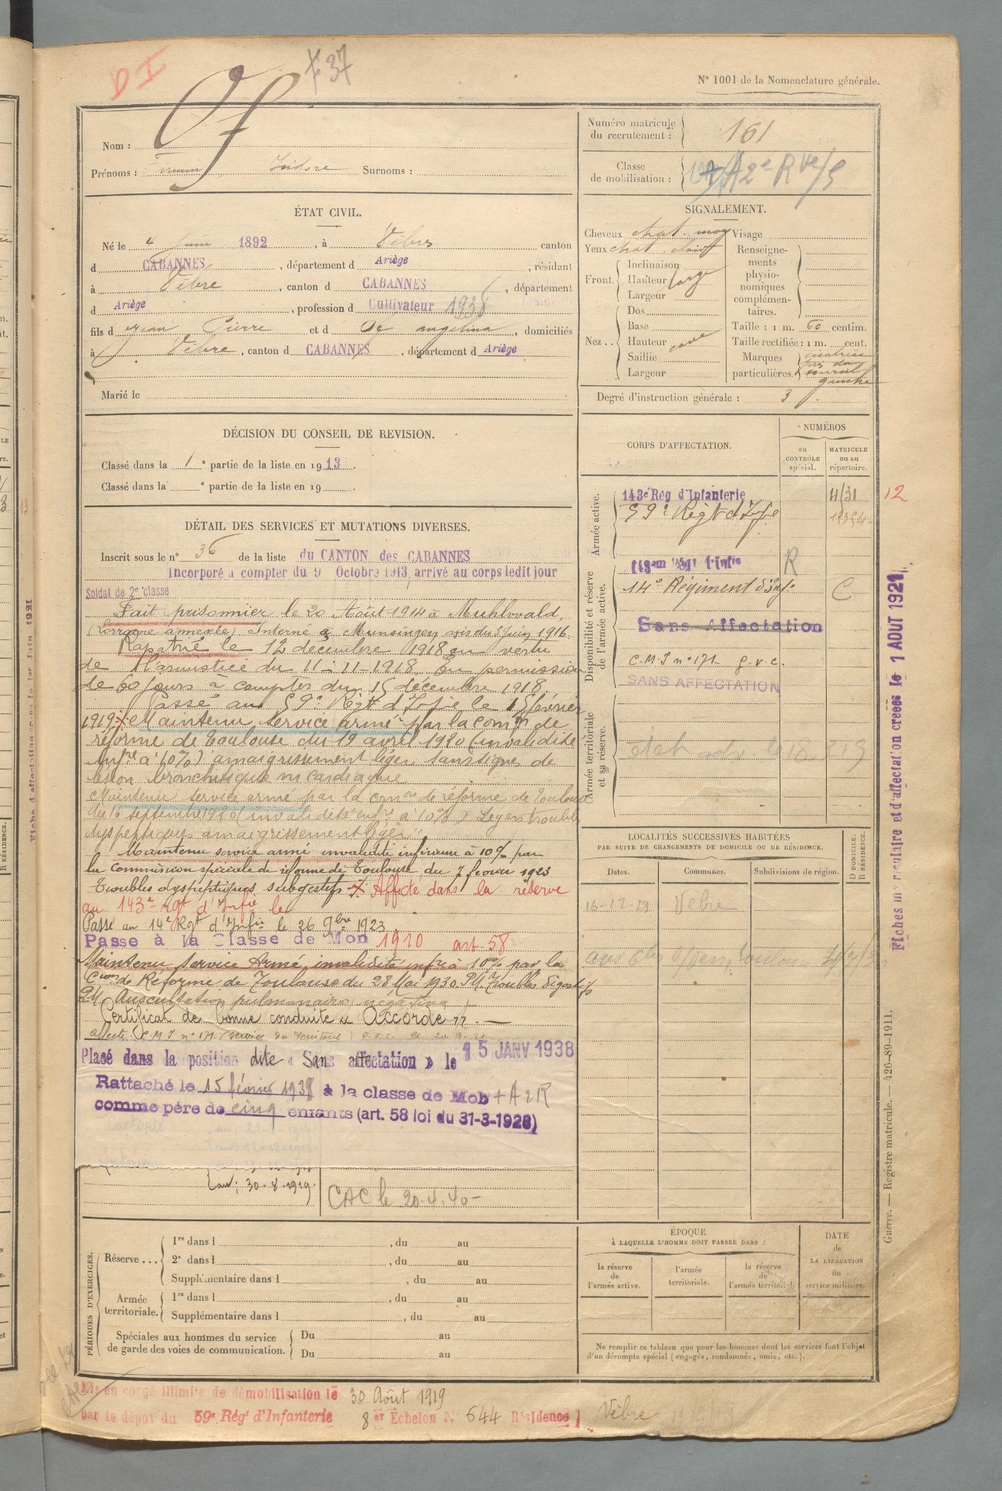 DI
F 37
N° 1001 de la Nomenclature générale.
Nom : Of
Prénoms : Firmin Isidore Surnoms :
Numéro matricule du recrutement : 161
Classe de mobilisation :
ÉTAT CIVIL.
Né le 4 Juin 1892, à Vèbre canton
d CABANNES, département d Ariège, résidant
à Vèbre, canton d CABANNES, département
d Ariège, profession d Cultivateur
fils d Jean Pierre et d Of angelina, domiciliés
à Vèbre, canton d CABANNES, département d Ariège
Marié le
SIGNALEMENT.
Cheveux chat. moy Visage
Yeux chat. clair
Front. Inclinaison
Hauteur large
Largeur
Nez. Dos
Base
Hauteur cave
Saillie
Largeur
Renseignements physionomiques complémentaires.
Taille : 1 m. 60 centim.
Taille rectifiée : 1 m. cent.
Marques particulières. cicatrice
gauche
Degré d'instruction générale : 3
DÉCISION DU CONSEIL DE REVISION.
Classé dans la 1e partie de la liste en 1913
Classé dans la e partie de la liste en 19
DÉTAIL DES SERVICES ET MUTATIONS DIVERSES.
Inscrit sous le n° 36 de la liste du CANTON des CABANNES
Incorporé à compter du 9 Octobre 1913, arrivé au corps ledit jour
Soldat de 2e classe
Fait prisonnier le 20 Août 1914 à Muhlwald
(Lorraine annexée) Interné à Munsingen avis du 5 juin 1916
Rapatrié le 12 décembre 1918 en vertu
de l'armistice du 11-11-1918. En permission
de 60 jours à compter du 15 décembre 1918.
Passé au 59e Régt d'Infie le 15 février
1919. Maintenu service armé par la comon de
réforme de Toulouse du 19 avril 1920 (invalidité
infre à 10%) amaigrissement léger sans signe de
lésion bronchique ni cardiaque
Maintenu service armé par la comon de réforme de Toulouse
du 16 septembre 1920 (invalidité infre à 10%) Légers troubles
dyspeptiques amaigrissement léger
Maintenu service armé invalidité inférieure à 10% par
la commission spéciale de réforme de Toulouse du 7 février 1923
Troubles dyspeptiques subjectifs Affecté dans la réserve
au 143e Rgt d'Infie le
Passé au 14e Rgt d'Infie le 26 9bre 1923
Passé à la Classe de Mob 1910 art. 58
Maintenu Service Armé invalidité infre à 10% par la
Cion de Réforme de Toulouse du 28 Mai 1930. Troubles digestifs
Auscultation pulmonaire négative
Certificat de bonne conduite "Accordé"
affecté C.M.I n° 171 (service du territoire)
Placé dans la position dite « Sans affectation » le 15 JANV 1938
Rattaché le 15 février 1938 à la classe de Mob + A 2 R
comme père de cinq enfants (art. 58 loi du 31-3-1928)
30-8-1919
CAC le 20-4-40
CORPS D'AFFECTATION.
NUMÉROS
au CONTRÔLE spécial.
MATRICULE ou au répertoire.
Armée active.
143e Rég d'Infanterie 4131 12
59e Régt d'Infie
Disponibilité et réserve de l'armée active.
R
14e Régiment d'Inf. C
Sans Affectation
C.M.I n° 171 g.v.c.
SANS AFFECTATION
Armée territoriale et sa réserve.
LOCALITÉS SUCCESSIVES HABITÉES
PAR SUITE DE CHANGEMENTS DE DOMICILE OU DE RÉSIDENCE.
Dates. Communes. Subdivisions de région. D DOMICILE. R RÉSIDENCE.
16-12-29 Vèbre
Fiches matriculaire et d'affectation créées le 1 AOUT 1921
Guerre. — Registre matricule. — 426-89-1911.
PÉRIODES D'EXERCICES.
Réserve... 1re dans l , du au
2e dans l , du au
Supplémentaire dans l , du au
Armée territoriale. 1re dans l , du au
Supplémentaire dans l , du au
Spéciales aux hommes du service de garde des voies de communication. Du au
Du au
ÉPOQUE
À LAQUELLE L'HOMME DOIT PASSER DANS :
la réserve de l'armée active.
l'armée territoriale.
la réserve de l'armée territoriale.
DATE de LA LIBÉRATION du service militaire.
Ne remplir ce tableau que pour les hommes dont les services font l'objet
d'un décompte spécial (engagés, condamnés, omis, etc.).
Mis en congé illimité de démobilisation le 30 Août 1919
par le dépôt du 59e Régt d'Infanterie 8e Echelon N° 644 Résidence Vèbre